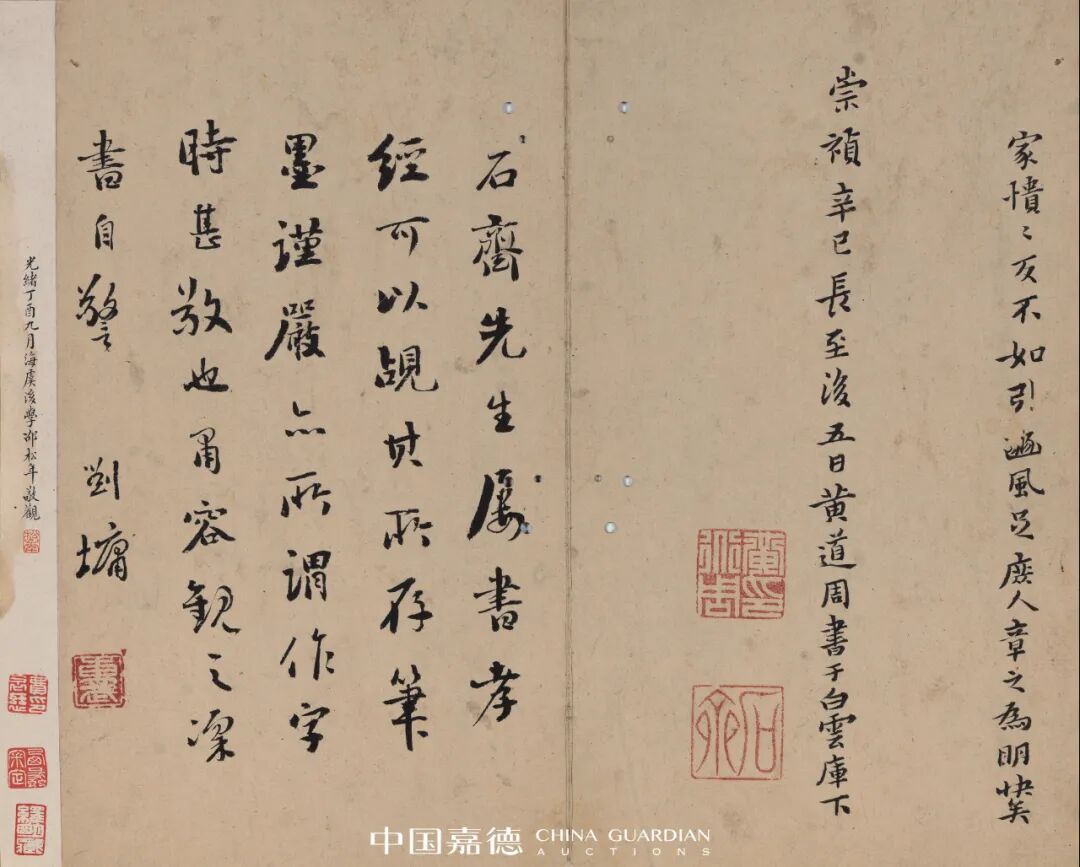 家憒〻反不如引豳風足庶人章之為明快矣
崇禎辛巳長至後五日黄道周書于白雲庫下
黄道周印
石齋
石齋先生屡書孝
經可以覘其所存筆
墨謹嚴亦所謂作字
時甚敬也肅容觀之凜
書自警 劉墉
光緒丁酉九月海虞後學邵松年敬觀
中国嘉德 CHINA GUARDIAN
AUCTIONS